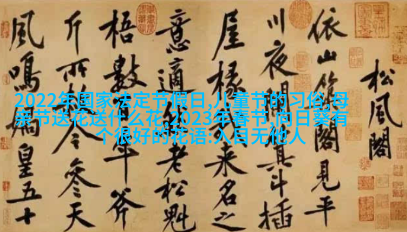 松風閣
依山築閣見平
川夜闌箕斗插
屋椽我來名之
意適然老松魁
梧數百年斧
斤所赦今參天
風鳴媧皇五十
2022年国家法定节假日,儿童节的习俗,母
亲节送花送什么花,2023年春节,向日葵有
个很好的花语:入目无他人